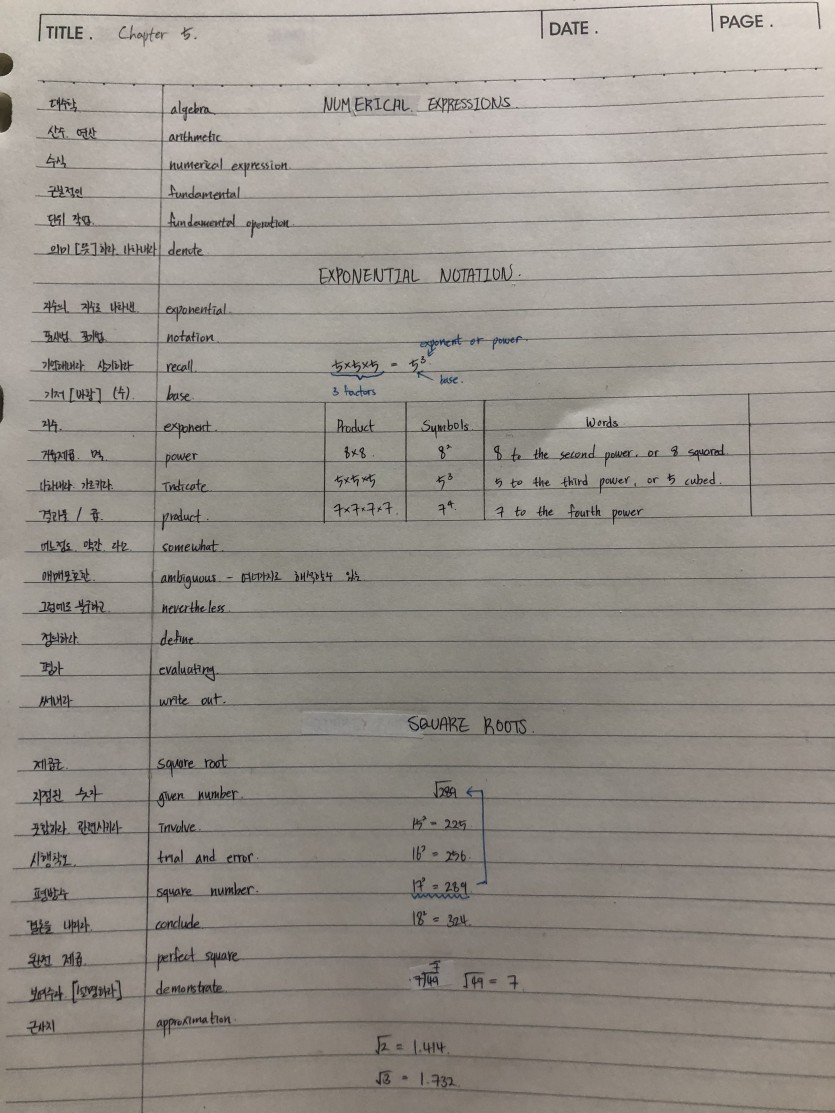 TITLE. Chapter 5. DATE. PAGE.
대수학 algebra NUMERICAL EXPRESSIONS
산수. 연산 arithmetic
수식 numerical expression
근본적인 fundamental
단위 작업 fundamental operation
의미[뜻]하라. 나타내라 denote
EXPONENTIAL NOTATION.
지수의 지수로 나타낸 exponential.
표시법 표기법 notation
exponent or power.
기억해내라 상기하라 recall 5×5×5 = 5³
base.
기저 [바탕] (수) base 3 factors
지수. exponent. Product Symbols Words
거듭제곱. 멱 power 8×8. 8² 8 to the second power, or 8 squared.
나타내라. 가르키라. Indicate 5×5×5 5³ 5 to the third power, or 5 cubed.
결과물 / 곱. product. 7×7×7×7. 7⁴. 7 to the fourth power
어느정도. 약간. 다소 somewhat.
애매모호한. ambiguous - 여러가지로 해석할수 있는
그럼에도 불구하고 nevertheless.
정의하라. define
평가 evaluating.
써내라 write out.
SQUARE ROOTS.
제곱근 square root
지정된 숫자 given number. √289
포함하라. 관련시키라 Involve. 15² = 225
시행착오. trial and error. 16² = 256.
평방수 square number. 17² = 289
결론을 내리라. conclude 18² = 324.
완전 제곱. perfect square
7
보여주라 [설명하라] demonstrate 7√49 √49 = 7
근사치 approximation.
√2 = 1.414.
√3 = 1.732.